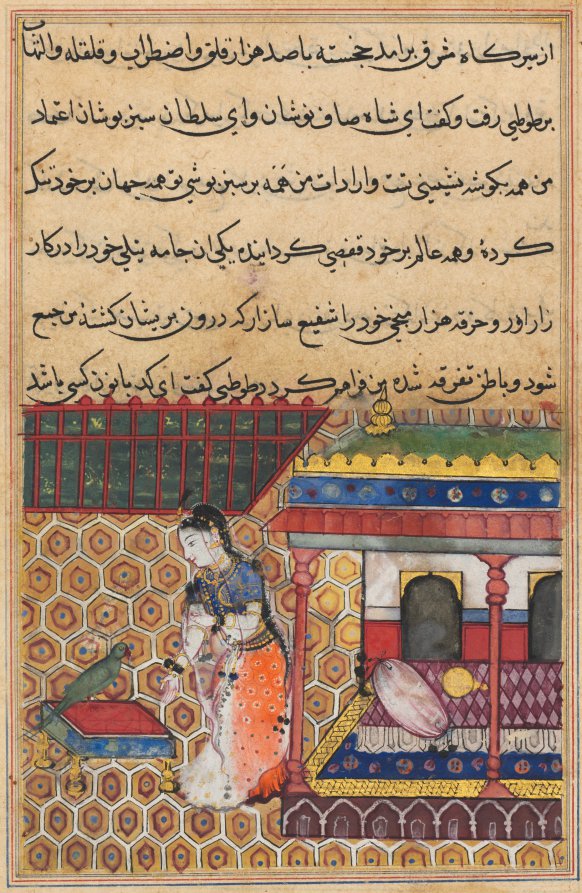 از سیرکاه مشرق برامد خجسته باصد هزار قلق واضطراب وقلقله والتهاب
برطوطی رفت وکفت ای شاه صاف نوشان وای سلطان سبزبوشان اعتماد
من همه بکوشه نشینی تست وارادات من همه برسبزبوشی تو همه جهان برخود تنک
کردهٔ وهمه عالم برخود قفصی کردانیده یکی ان جامه نیلی خود را درکار
زار اور وخرقه هزار میخی خود را شفیع ساز تا کره درون بریشان کشتهٔ من جمع
شود وباطن تفرقه شده من فراهم کردد طوطی کفت ای کدبانو کسی باشد